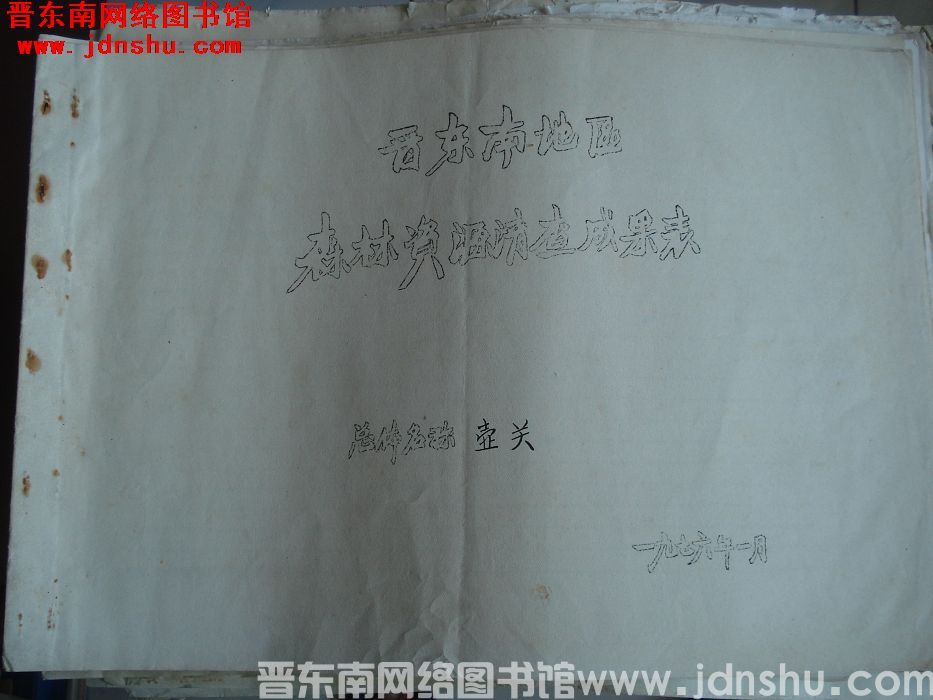 晋东南网络图书馆
www.jdnshu.com
晋东南地区
森林资源清查成果表
总体名称 壶关
一九七六年一月
晋东南网络图书馆www.jdnshu.com